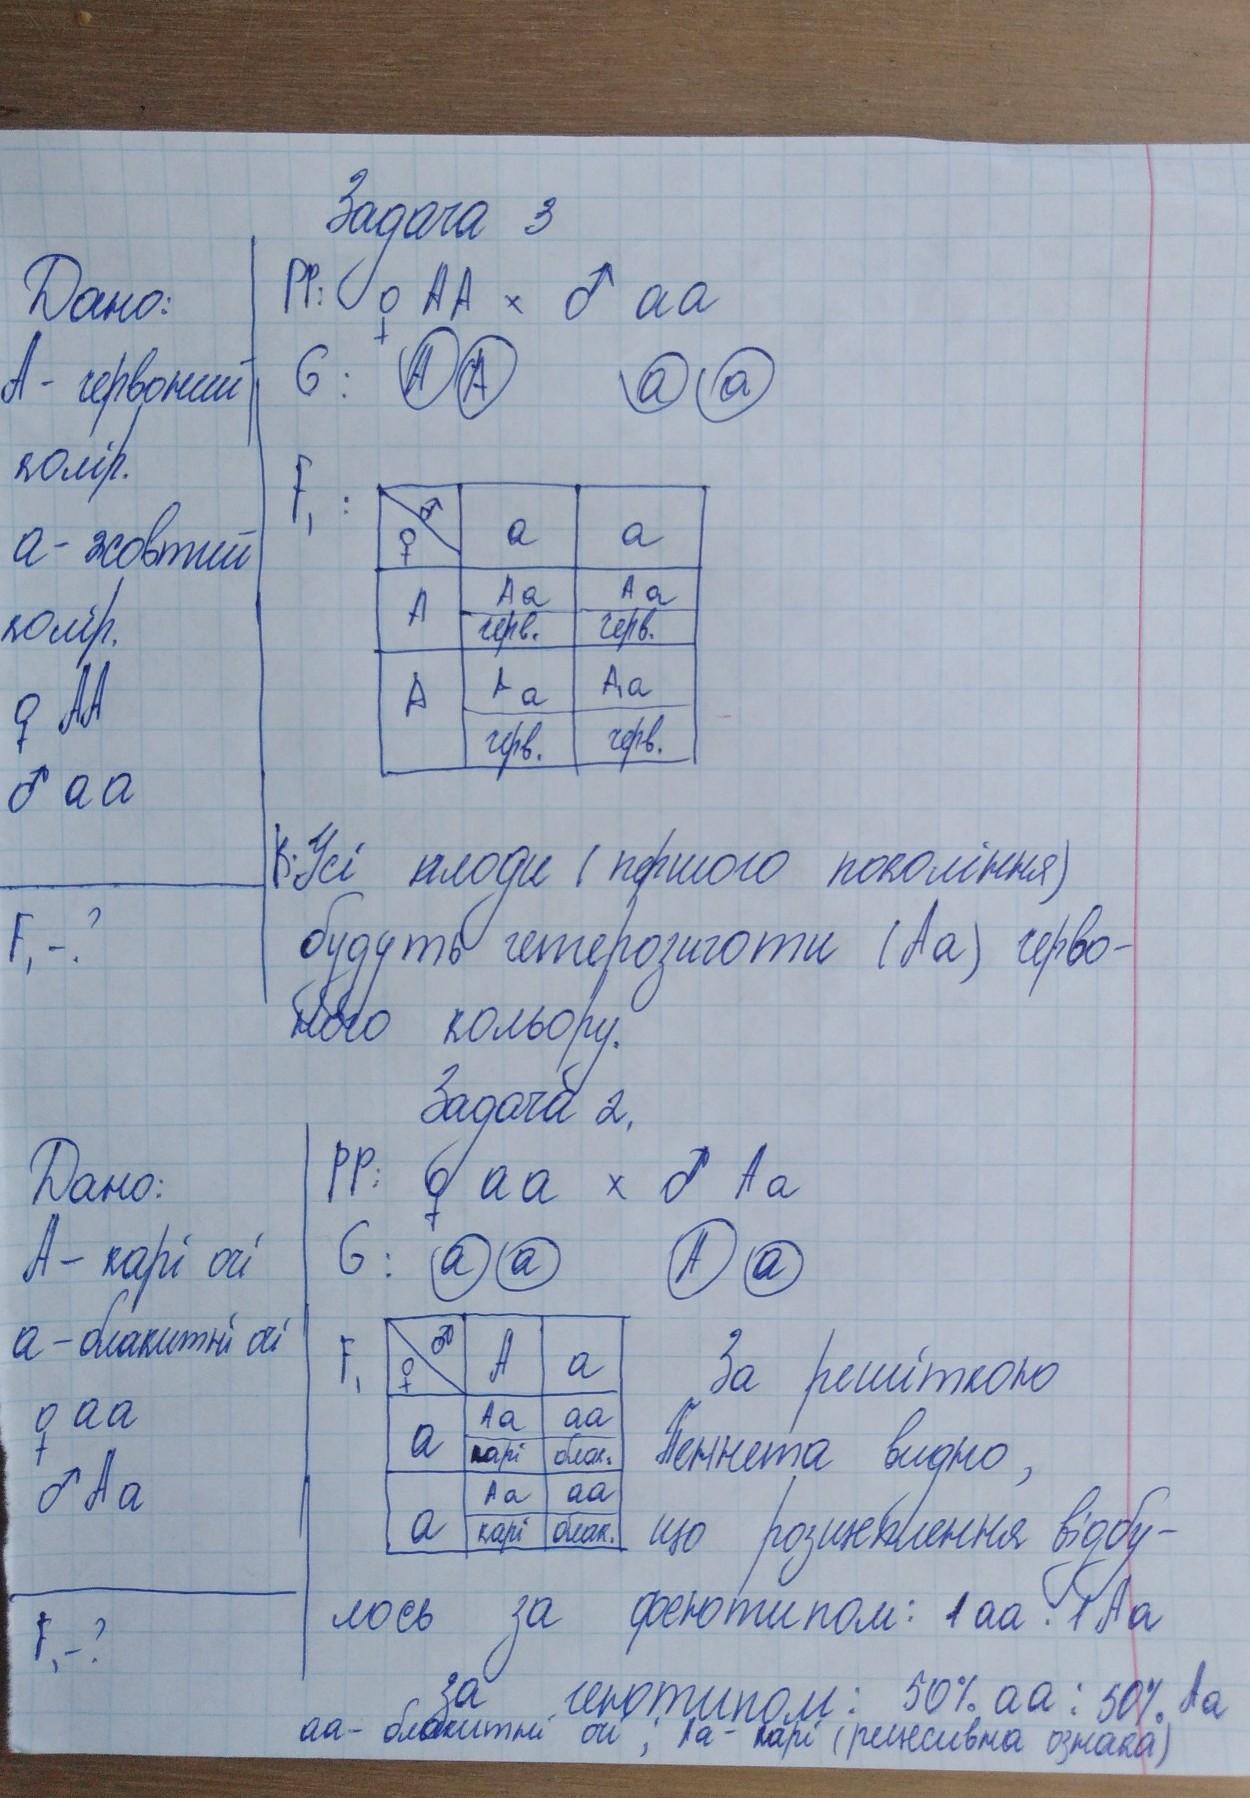 Задача 3
Дано:
А - червоний
колір.
а - жовтий
колір.
♀ АА
♂ аа
F₁ - ?
РР: ♀ АА × ♂ аа
G: А А а а
F₁:
♀ ♂ а а
А Аа Аа
черв. черв.
А Аа Аа
черв. черв.
В: Усі плоди (першого покоління)
будуть гетерозиготи (Аа) черво-
ного кольору.
Задача 2.
Дано:
А - карі очі
а - блакитні очі
♀ аа
♂ Аа
F₁ - ?
РР: ♀ аа × ♂ Аа
G: а а А а
F₁
♀ ♂ А а
а Аа аа
карі блак.
а Аа аа
карі блак.
За решіткою
Пеннета видно,
що розщеплення відбу-
лось за фенотипом: 1 аа : 1 Аа
за генотипом: 50% аа : 50% Аа
аа - блакитні очі ; Аа - карі (рецесивна ознака)